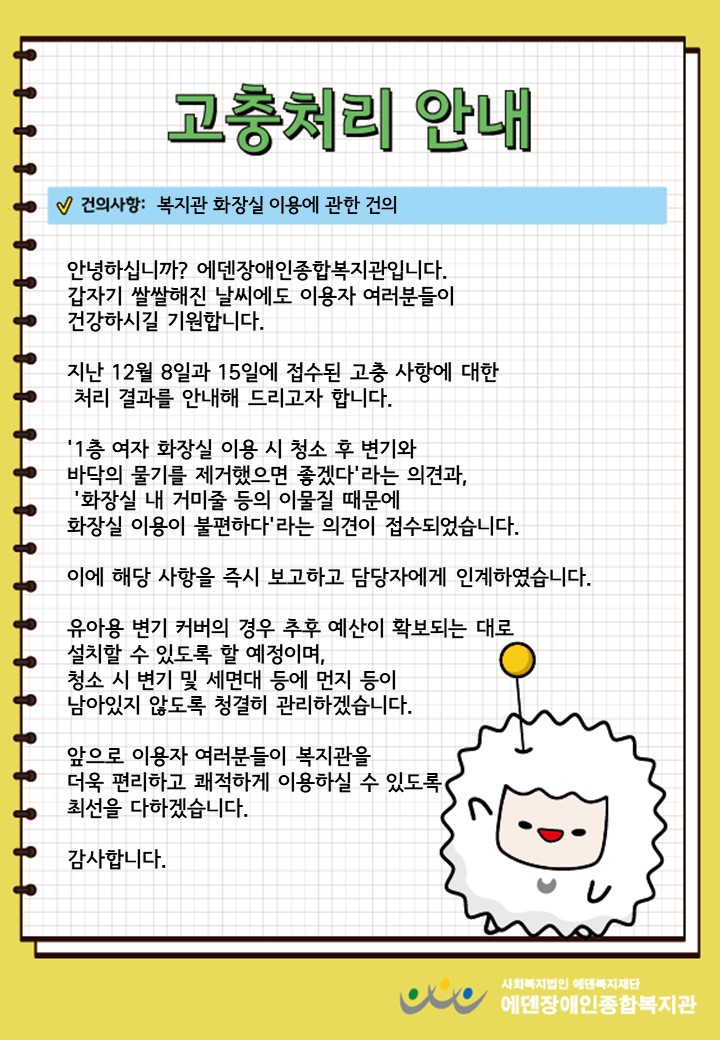 고충처리 안내
건의사항: 복지관 화장실 이용에 관한 건의
안녕하십니까? 에덴장애인종합복지관입니다.
갑자기 쌀쌀해진 날씨에도 이용자 여러분들이
건강하시길 기원합니다.
지난 12월 8일과 15일에 접수된 고충 사항에 대한
처리 결과를 안내해 드리고자 합니다.
'1층 여자 화장실 이용 시 청소 후 변기와
바닥의 물기를 제거했으면 좋겠다'라는 의견과,
'화장실 내 거미줄 등의 이물질 때문에
화장실 이용이 불편하다'라는 의견이 접수되었습니다.
이에 해당 사항을 즉시 보고하고 담당자에게 인계하였습니다.
유아용 변기 커버의 경우 추후 예산이 확보되는 대로
설치할 수 있도록 할 예정이며,
청소 시 변기 및 세면대 등에 먼지 등이
남아있지 않도록 청결히 관리하겠습니다.
앞으로 이용자 여러분들이 복지관을
더욱 편리하고 쾌적하게 이용하실 수 있도록
최선을 다하겠습니다.
감사합니다.
사회복지법인 에덴복지재단
에덴장애인종합복지관